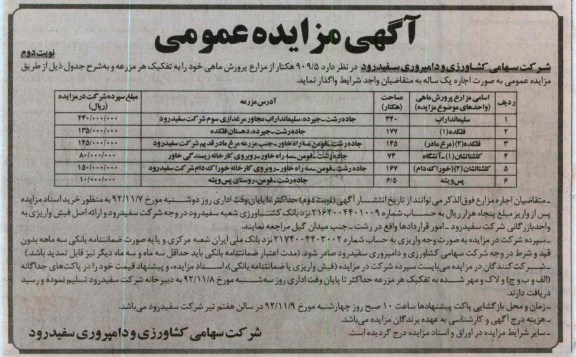 آگهی مزایده عمومی
نوبت دوم
شرکت سهامی کشاورزی و دامپروری سفیدرود در نظر دارد ۹۰۹/۵ هکتار از مزارع پرورش ماهی خود را به تفکیک هر مزرعه و به‌شرح جدول ذیل از طریق
مزایده عمومی به صورت اجاره یک ساله به متقاضیان واجد شرایط واگذار نماید.
ردیف اسامی مزارع پرورش ماهی (واحدهای موضوع مزایده) مساحت (هکتار) آدرس مزرعه مبلغ سپرده شرکت در مزایده (ریال)
۱ سلیمانداراب ۳۴۰ جاده رشت-جیرده، سلیمانداراب مجاور مرغداری سوم شرکت سفیدرود ۲۴۰/۰۰۰/۰۰۰
۲ فلکده(۱) ۱۷۷ جاده رشت-جیرده، دهستان فلکده ۱۳۵/۰۰۰/۰۰۰
۳ فلکده(۲)(مرغ مادر) ۱۴۵ جاده رشت-فومن، سه راه خاور-جنب مزرعه مرغ مادر قدیم شرکت سفیدرود ۱۴۵/۰۰۰/۰۰۰
۴ گلشتانشان(۱)-آتشگاه ۷۴ جاده رشت-فومن-سه راه خاور-روبروی کارخانه ریسندگی خاور ۸۰/۰۰۰/۰۰۰
۵ گلشتانشان(۲)(خوراک دام) ۱۶۷ جاده رشت-فومن-سه راه خاور-روبروی کارخانه خوراک دام شرکت سفیدرود ۱۵۰/۰۰۰/۰۰۰
۶ پس ویشه ۶/۵ جاده رشت-فومن-روستای پس ویشه ۱۰/۰۰۰/۰۰۰
-متقاضیان اجاره مزارع فوق‌الذکر می‌توانند از تاریخ انتشار آگهی (نوبت دوم) حداکثر تا پایان وقت اداری روز دوشنبه مورخ ۹۲/۱۱/۷ به منظور خرید اسناد مزایده
پس از واریز مبلغ پنجاه هزار ریال به حساب شماره ۲۱۶۴۰۰۴۴۰۱۰۰۹ نزد بانک کشاورزی شعبه سفیدرود در وجه شرکت سفیدرود و ارائه اصل فیش واریزی به
واحد بازرگانی شرکت سفیدرود-امور قراردادها واقع در رشت-جنب میدان گیل مراجعه نمایند.
-سپرده شرکت در مزایده به صورت وجه واریزی به حساب شماره ۲۱۷۴۰۰۴۴۰۳۰۰۲ نزد بانک ملی ایران شعبه مرکزی و یا به صورت ضمانتنامه بانکی سه ماهه بدون
قید و شرط در وجه شرکت سهامی کشاورزی و دامپروری سفیدرود صادر شود. (مدت اعتبار ضمانتنامه بانکی باید حداقل سه ماه و سه ماه دیگر نیز قابل تمدید باشد.)
-شرکت‌کنندگان در مزایده می‌بایست سپرده شرکت در مزایده (فیش واریزی یا ضمانتنامه بانکی)، اسناد مزایده، و پیشنهاد قیمت خود را در پاکت‌های جداگانه
(الف و ب و ج) و لاک و مهر شده به تفکیک هر مزرعه حداکثر تا پایان وقت اداری روز سه‌شنبه مورخ ۹۲/۱۱/۸ به دبیرخانه شرکت سفیدرود تسلیم نموده و رسید
دریافت دارند.
-زمان و محل بازگشایی پاکت پیشنهادها ساعت ۱۰ صبح روز چهارشنبه مورخ ۹۲/۱۱/۹ در سالن هفتم تیر شرکت سفیدرود می‌باشد.
-هزینه درج آگهی و کارشناسی به عهده برندگان مزایده می‌باشد.
-سایر شرایط مزایده در اوراق و اسناد مزایده درج گردیده است.
شرکت سهامی کشاورزی و دامپروری سفیدرود